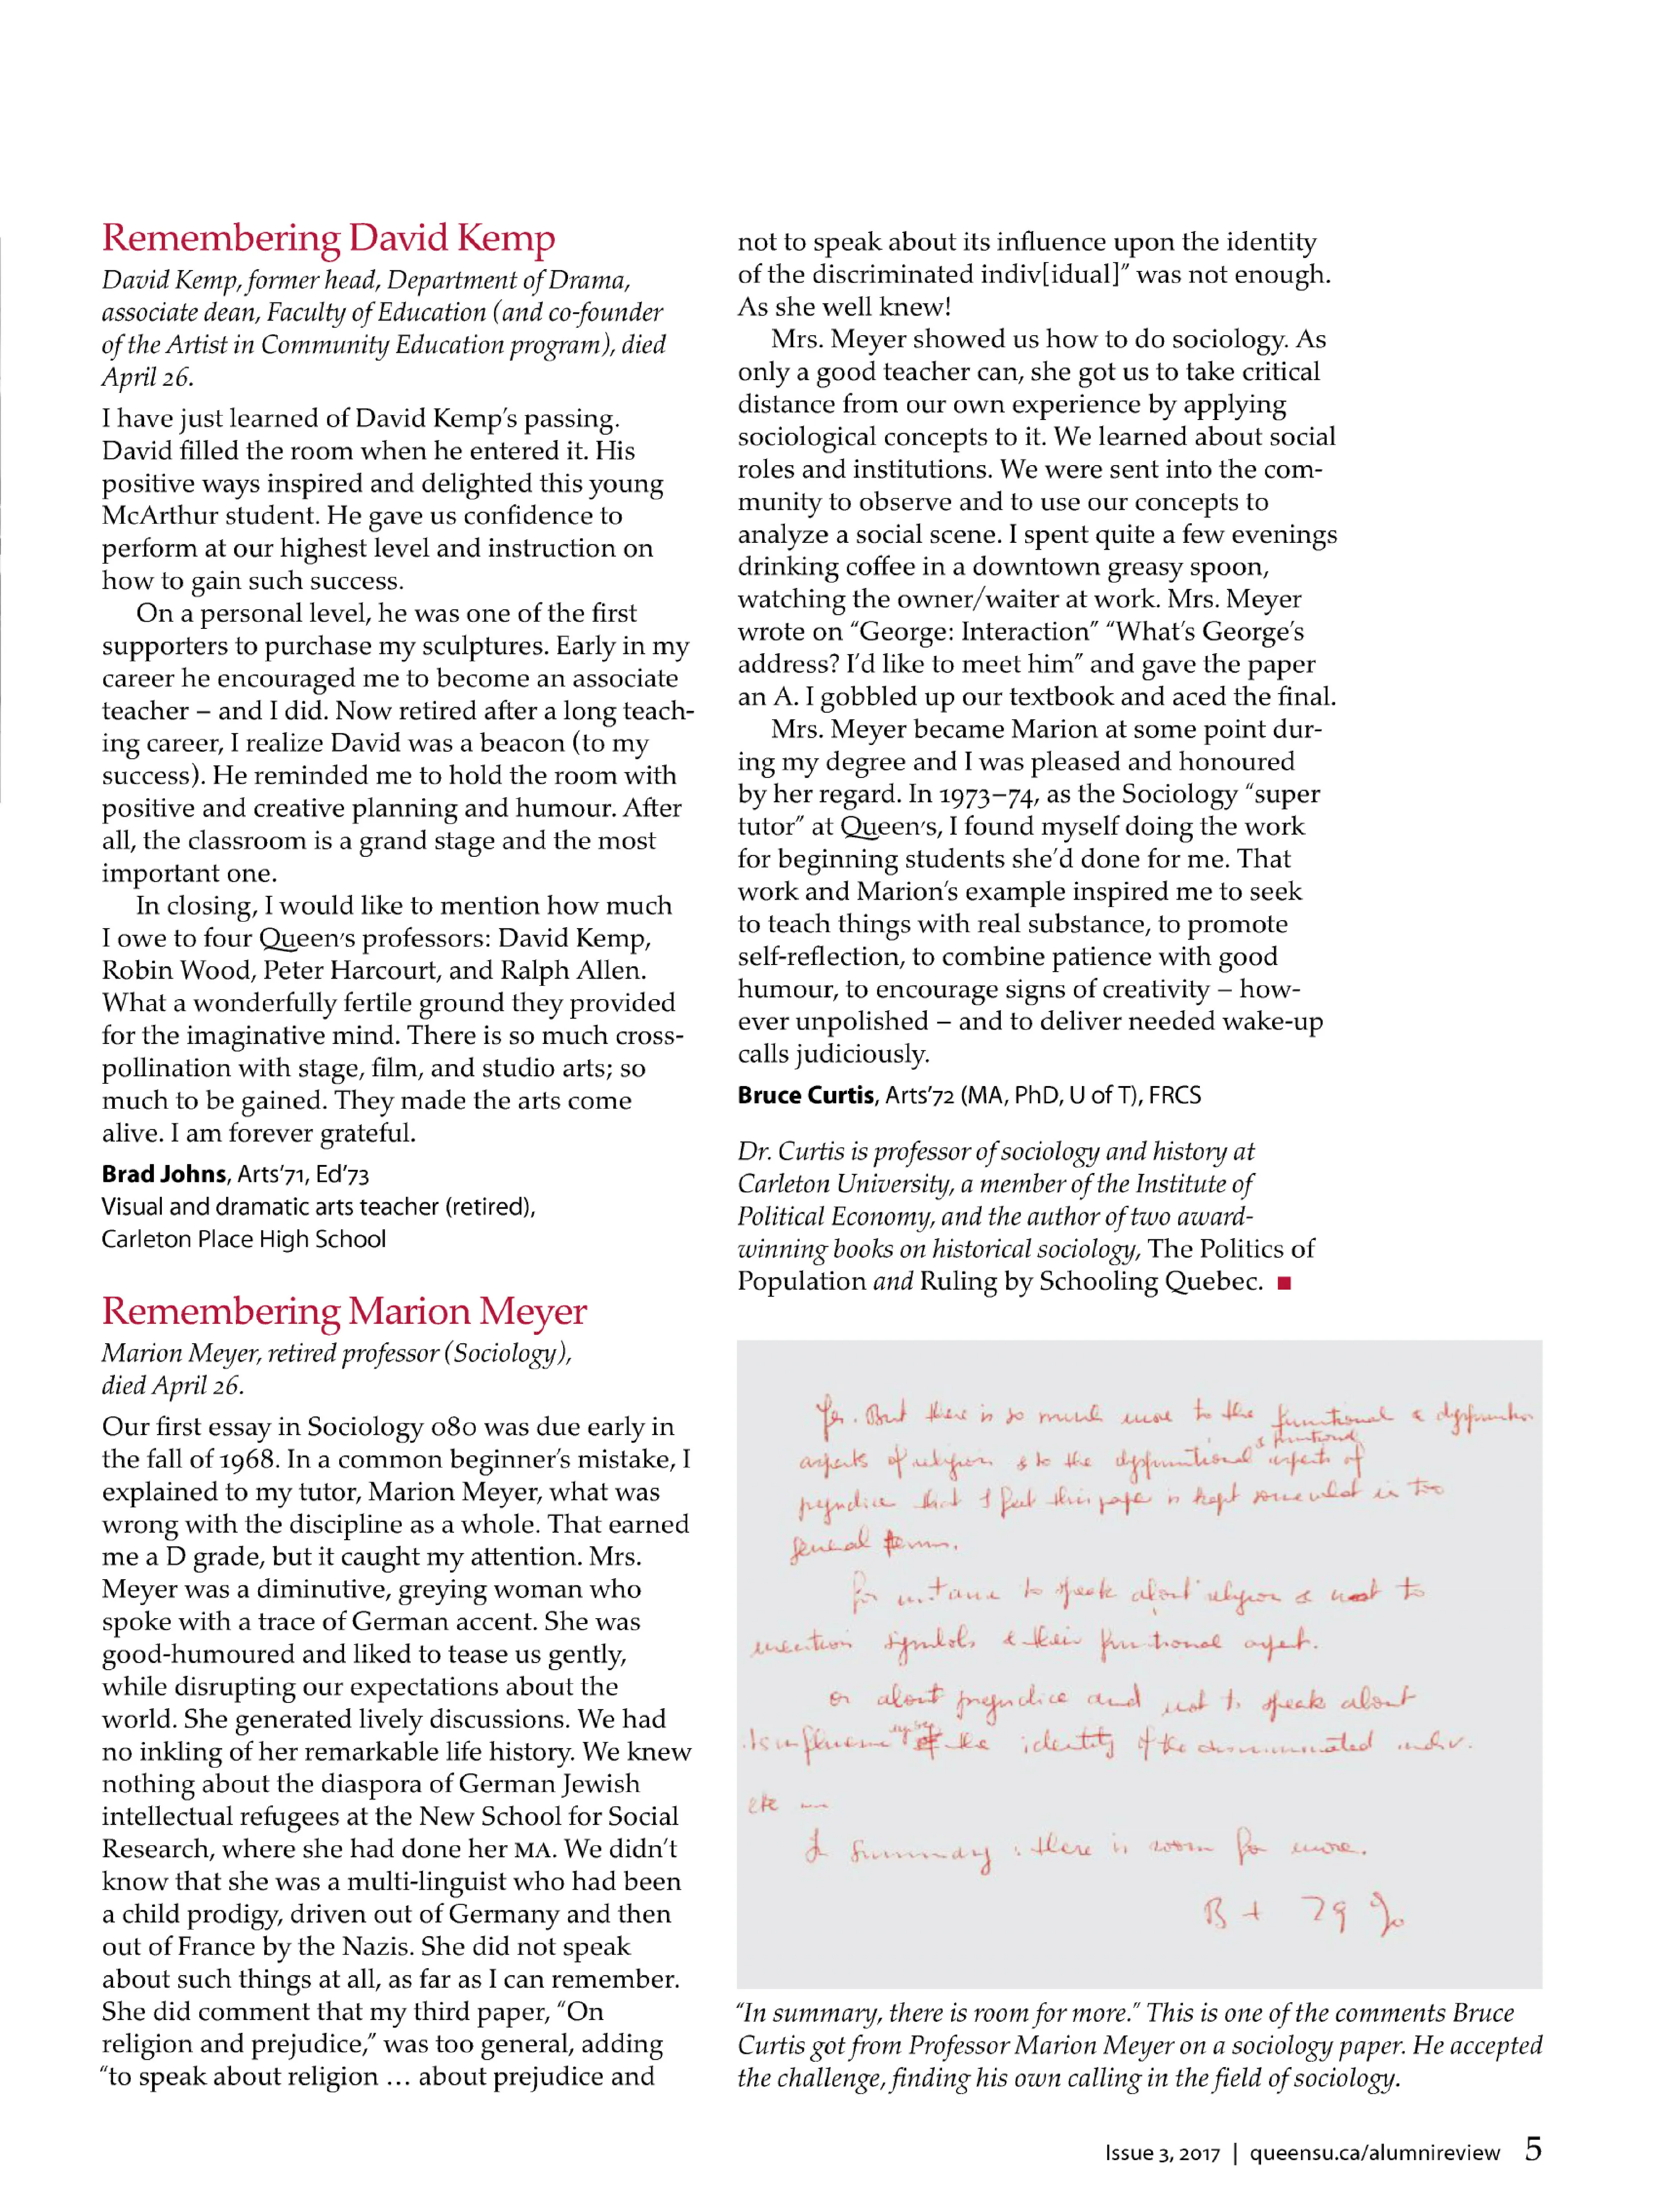 Remembering David Kemp
David Kemp, former head, Department of Drama,
associate dean, Faculty of Education (and co-founder
of the Artist in Community Education program), died
April 26.
I have just learned of David Kemp's passing.
David filled the room when he entered it. His
positive ways inspired and delighted this young
McArthur student. He gave us confidence to
perform at our highest level and instruction on
how to gain such success.
On a personal level, he was one of the first
supporters to purchase my sculptures. Early in my
career he encouraged me to become an associate
teacher – and I did. Now retired after a long teach-
ing career, I realize David was a beacon (to my
success). He reminded me to hold the room with
positive and creative planning and humour. After
all, the classroom is a grand stage and the most
important one.
In closing, I would like to mention how much
I owe to four Queen's professors: David Kemp,
Robin Wood, Peter Harcourt, and Ralph Allen.
What a wonderfully fertile ground they provided
for the imaginative mind. There is so much cross-
pollination with stage, film, and studio arts; so
much to be gained. They made the arts come
alive. I am forever grateful.
Brad Johns, Arts'71, Ed'73
Visual and dramatic arts teacher (retired),
Carleton Place High School
Remembering Marion Meyer
Marion Meyer, retired professor (Sociology),
died April 26.
Our first essay in Sociology 080 was due early in
the fall of 1968. In a common beginner's mistake, I
explained to my tutor, Marion Meyer, what was
wrong with the discipline as a whole. That earned
me a D grade, but it caught my attention. Mrs.
Meyer was a diminutive, greying woman who
spoke with a trace of German accent. She was
good-humoured and liked to tease us gently,
while disrupting our expectations about the
world. She generated lively discussions. We had
no inkling of her remarkable life history. We knew
nothing about the diaspora of German Jewish
intellectual refugees at the New School for Social
Research, where she had done her MA. We didn't
know that she was a multi-linguist who had been
a child prodigy, driven out of Germany and then
out of France by the Nazis. She did not speak
about such things at all, as far as I can remember.
She did comment that my third paper, "On
religion and prejudice," was too general, adding
"to speak about religion ... about prejudice and
not to speak about its influence upon the identity
of the discriminated indiv[idual]" was not enough.
As she well knew!
Mrs. Meyer showed us how to do sociology. As
only a good teacher can, she got us to take critical
distance from our own experience by applying
sociological concepts to it. We learned about social
roles and institutions. We were sent into the com-
munity to observe and to use our concepts to
analyze a social scene. I spent quite a few evenings
drinking coffee in a downtown greasy spoon,
watching the owner/waiter at work. Mrs. Meyer
wrote on "George: Interaction" "What's George's
address? I'd like to meet him" and gave the paper
an A. I gobbled up our textbook and aced the final.
Mrs. Meyer became Marion at some point dur-
ing my degree and I was pleased and honoured
by her regard. In 1973–74, as the Sociology "super
tutor" at Queen's, I found myself doing the work
for beginning students she'd done for me. That
work and Marion's example inspired me to seek
to teach things with real substance, to promote
self-reflection, to combine patience with good
humour, to encourage signs of creativity – how-
ever unpolished – and to deliver needed wake-up
calls judiciously.
Bruce Curtis, Arts'72 (MA, PhD, U of T), FRCS
Dr. Curtis is professor of sociology and history at
Carleton University, a member of the Institute of
Political Economy, and the author of two award-
winning books on historical sociology, The Politics of
Population and Ruling by Schooling Quebec.
Yes. But there is so much more to the functional & dysfunction
aspects of religion & to the dysfunctional & functional aspects of
prejudice that I feel this paper is kept somewhat in too
general terms.
For instance to speak about religion & not to
mention symbols & their functional aspect.
or about prejudice and not to speak about
its influence upon the identity of the discriminated indiv.
etc
In summary : there is room for more.
B + 79 %
"In summary, there is room for more." This is one of the comments Bruce
Curtis got from Professor Marion Meyer on a sociology paper. He accepted
the challenge, finding his own calling in the field of sociology.
Issue 3, 2017 | queensu.ca/alumnireview 5